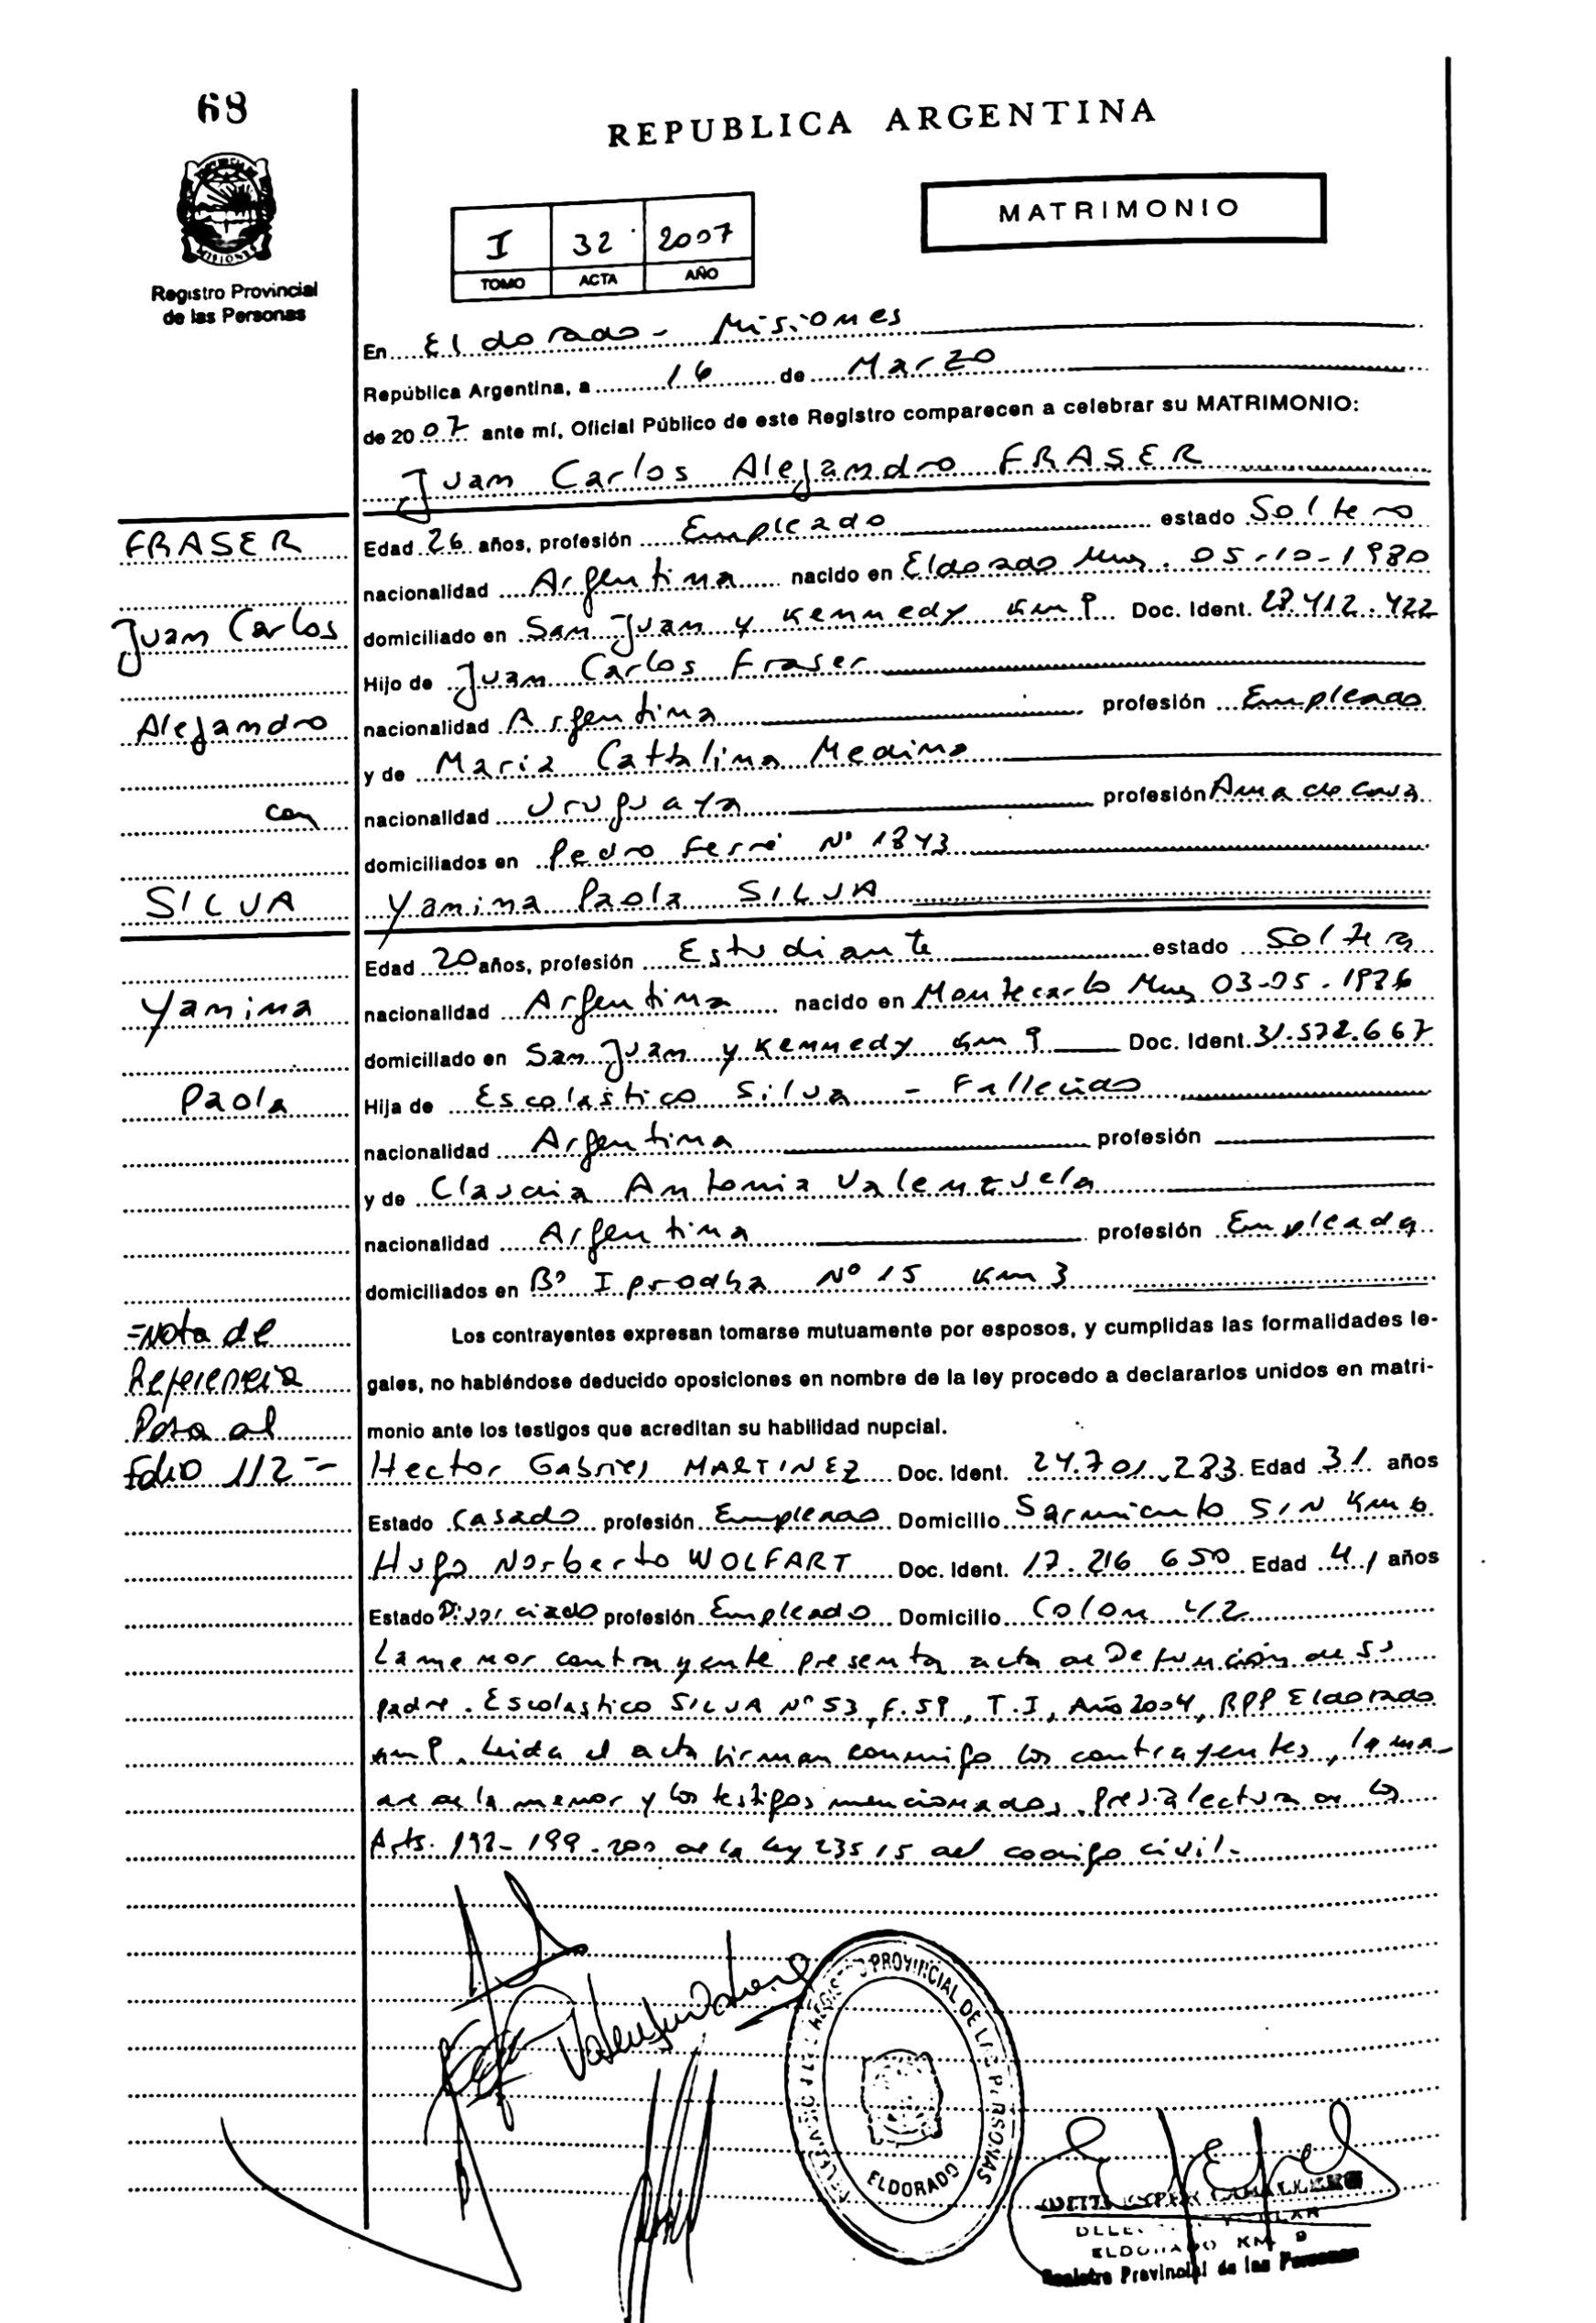 68
REPUBLICA ARGENTINA
MATRIMONIO
I 32 2007
TOMO ACTA AÑO
MISIONES
Registro Provincial
de las Personas
En Eldorado - Misiones
República Argentina, a 16 de Marzo
de 2007 ante mí, Oficial Público de este Registro comparecen a celebrar su MATRIMONIO:
Juan Carlos Alejandro FRASER
FRASER
Edad 26 años, profesión Empleado estado Soltero
nacionalidad Argentina nacido en Eldorado Mnes. 05-10-1980
Juan Carlos
domiciliado en San Juan y Kennedy Km 9 Doc. Ident. 28.412.422
Hijo de Juan Carlos Fraser
Alejandro
nacionalidad Argentina profesión Empleado
y de Maria Cattalina Medina
con
nacionalidad Uruguaya profesión Ama de Casa
domiciliados en Pedro Ferré Nº 1843
SILVA
Yanina Paola SILVA
Edad 20 años, profesión Estudiante estado Soltera
Yanina
nacionalidad Argentina nacido en Montecarlo Mnes 03-05-1986
domiciliado en San Juan y Kennedy Km 9 Doc. Ident. 31.572.667
Paola
Hija de Escolastico Silva - Fallecido
nacionalidad Argentina profesión
y de Claudia Antonia Valenzuela
nacionalidad Argentina profesión Empleada
domiciliados en Bº Iprodha Nº 15 Km 3
=Nota de
Referencia
Pasa al
Folio 112=
Los contrayentes expresan tomarse mutuamente por esposos, y cumplidas las formalidades le-
gales, no habiéndose deducido oposiciones en nombre de la ley procedo a declararlos unidos en matri-
monio ante los testigos que acreditan su habilidad nupcial.
Hector Gabriel MARTINEZ Doc. Ident. 24.701.283 Edad 31 años
Estado Casado profesión Empleado Domicilio Sarmiento S/N Km 6
Hugo Norberto WOLFART Doc. Ident. 17.216 650 Edad 41 años
Estado Divorciado profesión Empleado Domicilio Colon 412
La menor contrayente presenta acta de Defunción de su
padre. Escolastico SILVA Nº 53, F.59, T.I, Año 2004, RPP Eldorado
Km 9. Leida el acta firman conmigo los contrayentes, la ma-
dre de la menor y los testigos mencionados, Previa lectura de los
Arts. 198-199-200 de la Ley 23515 del codigo civil-
REGISTRO PROVINCIAL DE LAS PERSONAS
ELDORADO
ELDORADO KM. 9
Registro Provincial de las Personas